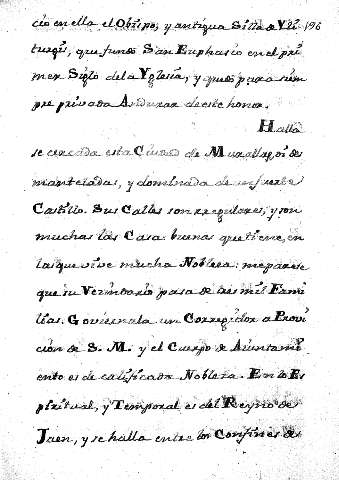 cio en ella el Obispo, y antigua Silla de Yli 196
turgi, que fundo San Euphasio en el pri
mer Siglo de la Yglesia, y quedo para siem
pre privada Andujar de este honor.
Halla
se cercada esta Ciudad de Murallas, oi des
manteladas, y dominada de un fuerte
Castillo. Sus Calles son regulares, y son
muchas las Casas buenas que tiene, en
las que vive mucha Nobleza: me parese
que su Vecindario pasa de tres mil Fami
lias. Goviernala un Corregidor a Provi
cion de S. M. y el Cuerpo de Aiuntami
ento es de calificada Nobleza. En lo Es
piritual, y Temporal es del Reyno de
Jaen, y se halla entre los Confines de